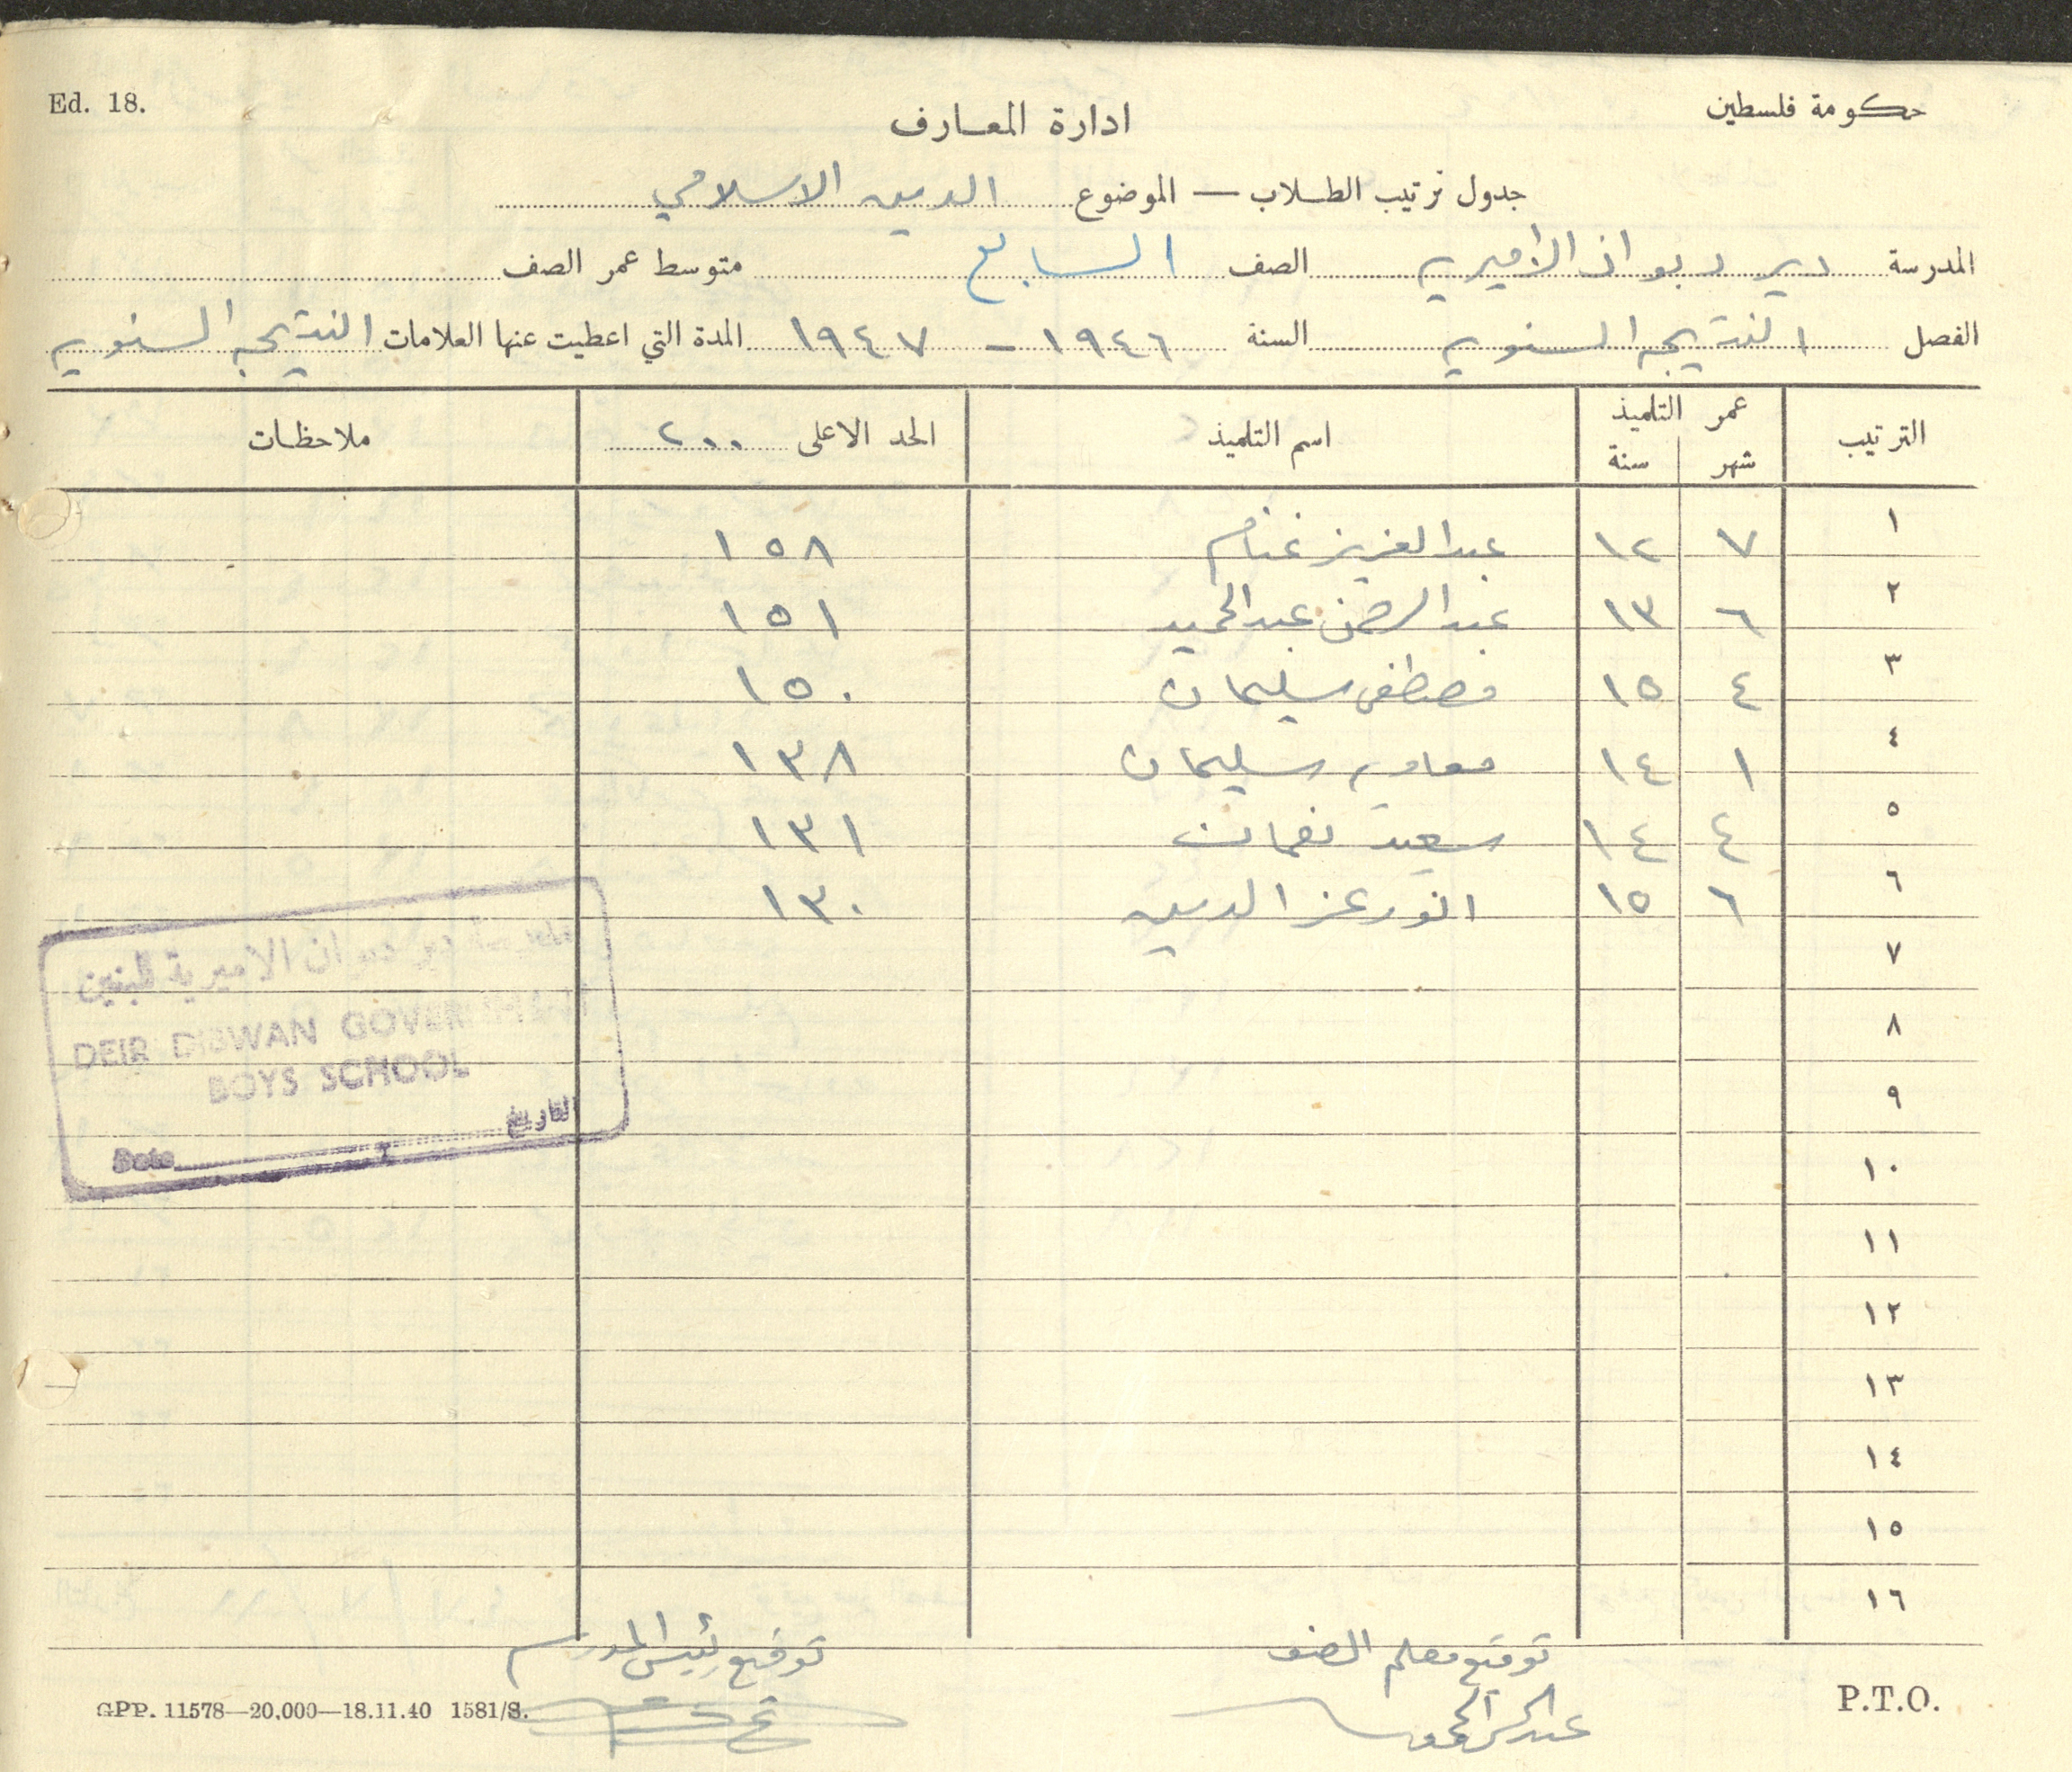 Ed. 18.
حكومة فلسطين
ادارة المعارف
جدول ترتيب الطلاب — الموضوع الدين الاسلامي
المدرسة دير دبوان الأميرية الصف السابع متوسط عمر الصف
الفصل النتيجة السنوية السنة ١٩٤٦ - ١٩٤٧ المدة التي اعطيت عنها العلامات النتيجة السنوية
الترتيب عمر التلميذ شهر سنة اسم التلميذ الحد الاعلى ٢٠٠ ملاحظات
١ ٧ ١٢ عبد العزيز غنام ١٥٨
٢ ٦ ١٣ عبد الرحمن عبد الحميد ١٥١
٣ ٤ ١٥ مصطفى سليمان ١٥٠
٤ ١ ١٤ معاوية سليمان ١٣٨
٥ ٤ ١٤ سعيد نعمان ١٣١
٦ ٦ ١٥ انور عز الدين ١٣٠
٧
٨
٩
١٠
١١
١٢
١٣
١٤
١٥
١٦
مدرسة دير دبوان الاميرية للبنين
DEIR DIBWAN GOVERNMENT
BOYS SCHOOL
Date التاريخ
توقيع معلم الصف توقيع رئيس المدرسة
GPP. 11578—20,000—18.11.40 1581/S.
P.T.O.